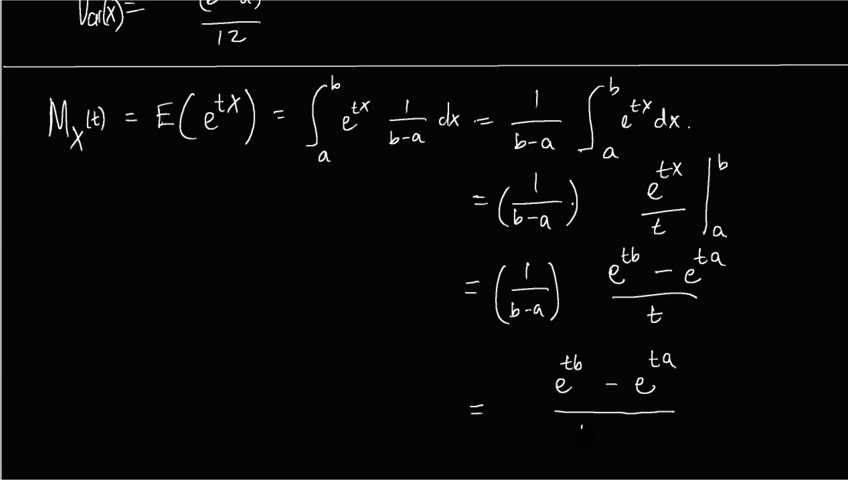 Var(x) = 12
M_X(t) = E(e^{tX}) = ∫_a^b e^{tx} 1/(b-a) dx = 1/(b-a) ∫_a^b e^{tx} dx.
= (1/(b-a)) · e^{tx}/t |_a^b
= (1/(b-a)) (e^{tb} - e^{ta})/t
= e^{tb} - e^{ta}